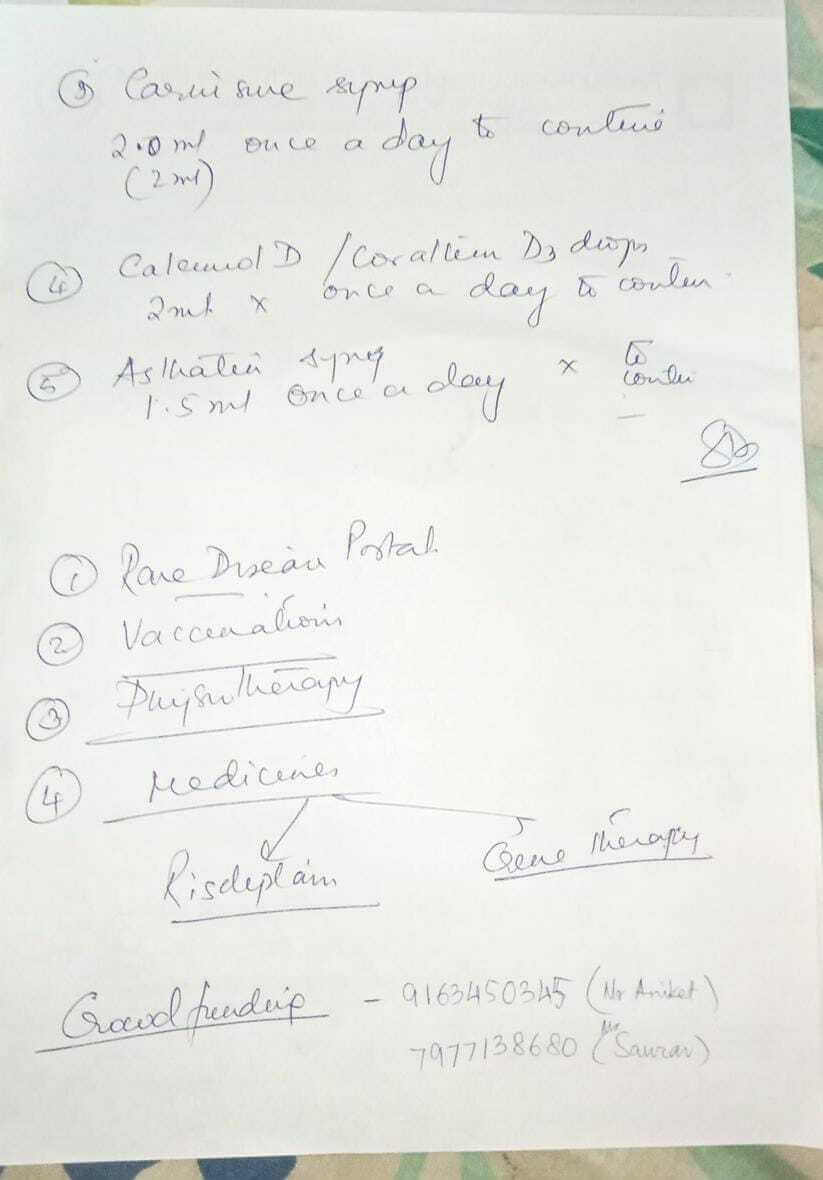 ③ Carnisure syrup
2.0 ml once a day to continue
(2 ml)
④ Calcimol D / Corallium D3 drops
2 ml x once a day to contin
⑤ Asthalin syrup
1.5 ml once a day x to contin
① Rare Disease Portal
② Vaccinations
③ Physiotherapy
④ Medicines
Risdiplam Gene Therapy
Crowd funding - 9163450345 (Mr Aniket)
7977138680 (Mr Saurav)